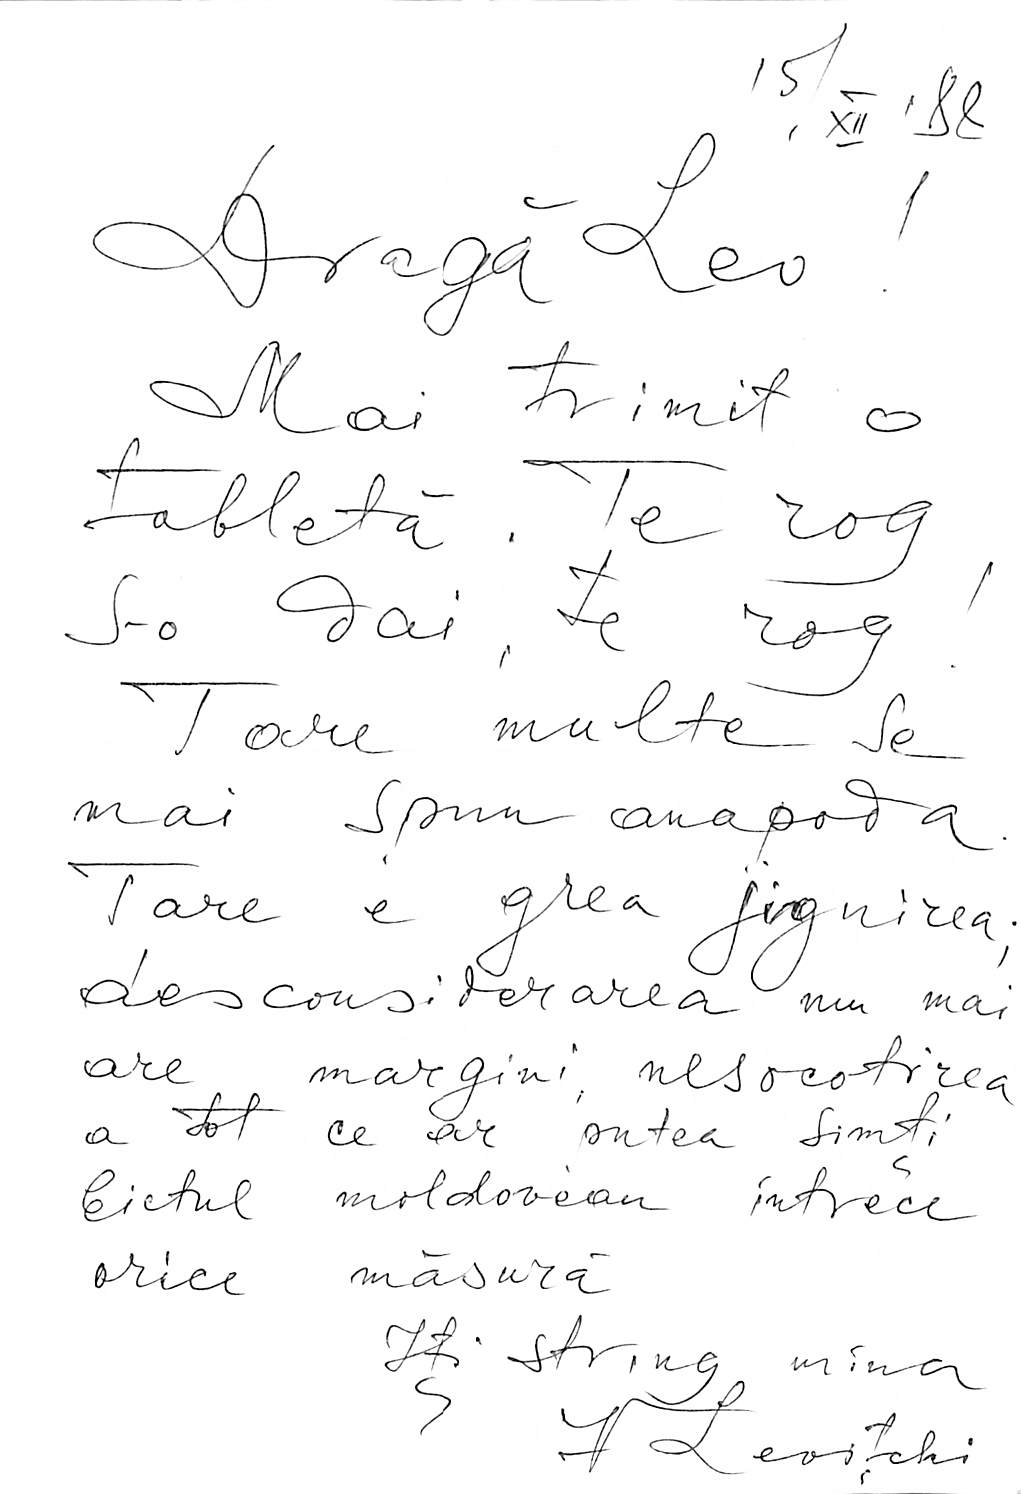 15/XII '88
Dragă Leo!
Mai trimit o
tabletă. Te rog
s-o dai, te rog!
Tare multe se
mai spun anapoda.
Tare e grea jignirea;
desconsiderarea nu mai
are margini, nesocotirea
a tot ce ar putea simți
bietul moldovean întrece
orice măsură
Iți string mîna
Levițchi